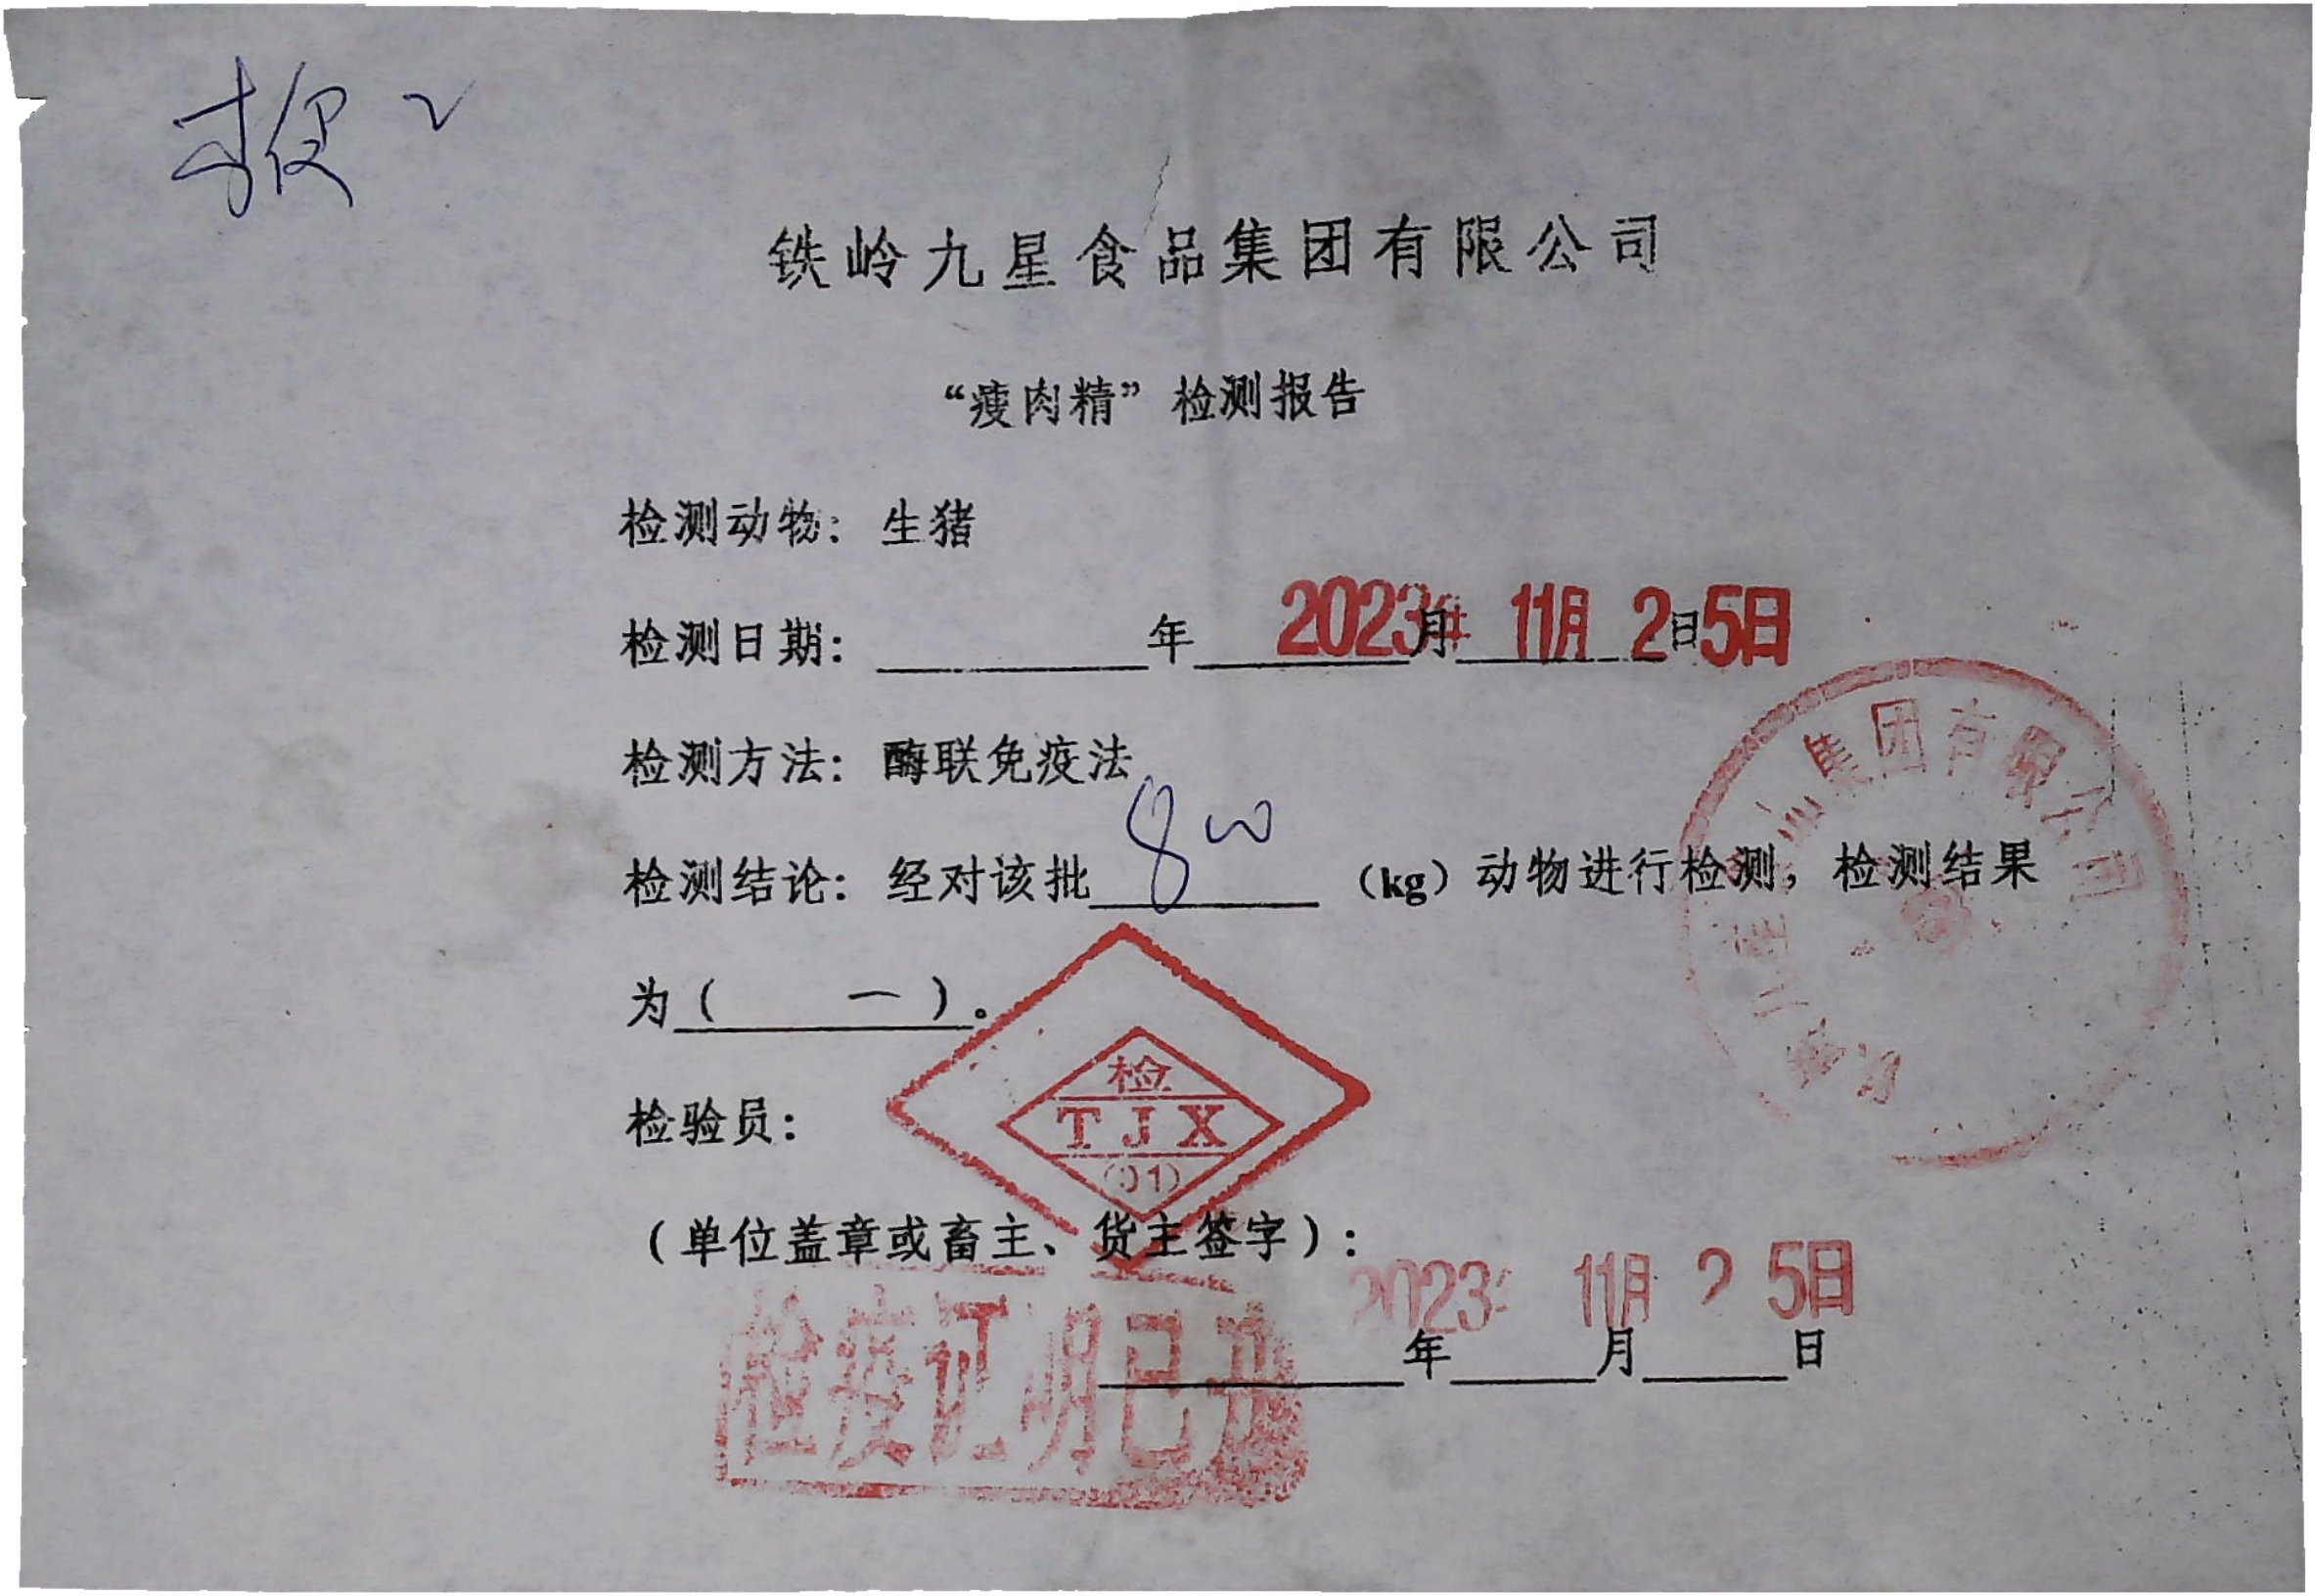 铁岭九星食品集团有限公司
“瘦肉精”检测报告
检测动物：生猪
检测日期：年月日
2023年 11月 25日
检测方法：酶联免疫法
检测结论：经对该批 800 （kg）动物进行检测，检测结果
为（ 一 ）。
集团有限公司
检
TJX
(01)
检验员：
（单位盖章或畜主、货主签字）：
2023年 11月 25日
年月日
检疫证明已开